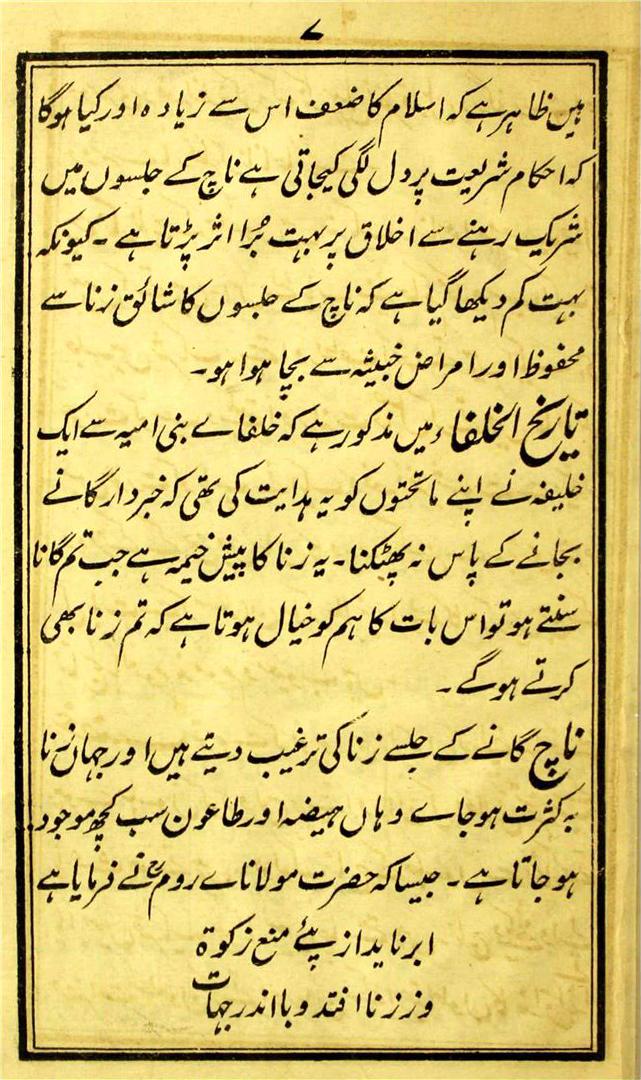 ۷
ہیں ظاہر ہے کہ اسلام کا ضعف اس سے زیادہ اور کیا ہوگا
کہ احکام شریعت پر دل لگی کیجاتی ہے ناچ کے جلسوں میں
شریک رہنے سے اخلاق پر بہت بُرا اثر پڑتا ہے ۔ کیونکہ
بہت کم دیکھا گیا ہے کہ ناچ کے جلسوں کا شائق زنا سے
محفوظ اور امراض خبیثہ سے بچا ہوا ہو ۔
تاریخ الخلفاء میں مذکور ہے کہ خلفاے بنی امیہ سے ایک
خلیفہ نے اپنے ماتحتوں کو یہ ہدایت کی تھی کہ خبردار گانے
بجانے کے پاس نہ پھٹکنا ۔ یہ زنا کا پیش خیمہ ہے جب تم گانا
سنتے ہو تو اس بات کا ہم کو خیال ہوتا ہے کہ تم زنا بھی
کرتے ہو گے ۔
ناچ گانے کے جلسے زنا کی ترغیب دیتے ہیں اور جہان زنا
بہ کثرت ہو جاے وہاں ہیضہ اور طاعون سب کچھ موجود
ہو جاتا ہے ۔ جیسا کہ حضرت مولاناے روم رح نے فرمایا ہے
ابر ناید از پئے منع زکوة
وز زنا افتد وبا اندر جہات